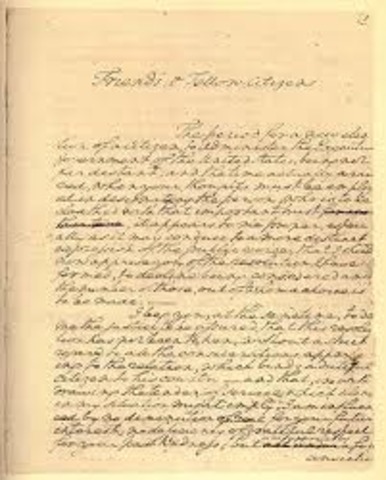 2
Friends, & Fellow-Citizens
The period for a new elec-
tion of a Citizen, to administer the Executive
government of the United States, being not
far distant, and the time actually arri-
ved, when your thoughts must be employ-
ed in designating the person, who is to be
cloathed with that important trust
it appears to me proper, especi-
ally as it may conduce to a more distinct
expression of the public voice, that I should
now apprise you of the resolution I have
formed, to decline being considered among
the number of those, out of whom a choice is
to be made.
I beg you, at the same time, to do
me the justice to be assured, that this resolu-
tion has not been taken, without a strict
regard to all the considerations appertain-
ing to the relation, which binds a dutiful
citizen to his country and that, in with
drawing the tender of service which silence
in my situation might imply, I am influen
ced by no diminution of zeal for your future
interest, no deficiency of grateful respect
for your past kindness; but